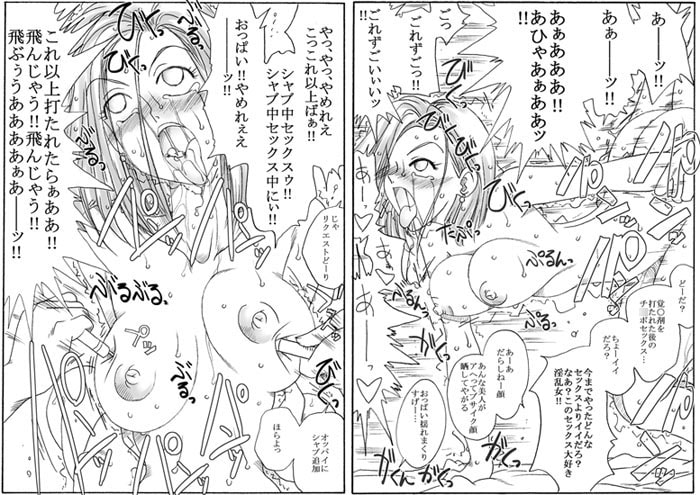 あーーッ!!
あぁーーッ!!
あぁあああ!!
あひゃあぁああッ
ごっ
ごれずごっ!!
ごれずごいいいッ
どーだ?
覚〇剤を
打たれた後の
チ ポセックス…
ちょーイイ
だろ?
今までやったどんな
セックスよりイイだろ?
なあ?このセックス大好き
淫乱女!!
あーあ
だらしねー顔
あんな美人が
アヘってブサイク顔
晒してやがる
おっぱい揺れまくり
すげー…
びくっ
びくっ
たぷぅっ
ぷるんっ
パン
パン
パン
がくんっ
がくんっ
やっやっやめれえ
こっこれ以上ばぁ!!
シャブ中セックスゥ!!
シャブ中セックス中にぃ!!
おっぱい!!やめれぇえ
ーーッ!!
これ以上打たれたらぁああ!!
飛んじゃう!!飛んじゃう!!
飛ぶぅうあああああぁあーーッ!!
じゃ
リクエストどーり
オッパイに
シャブ追加
ほらよっ
びくっ
ぶるっ
ぶるぶるっ